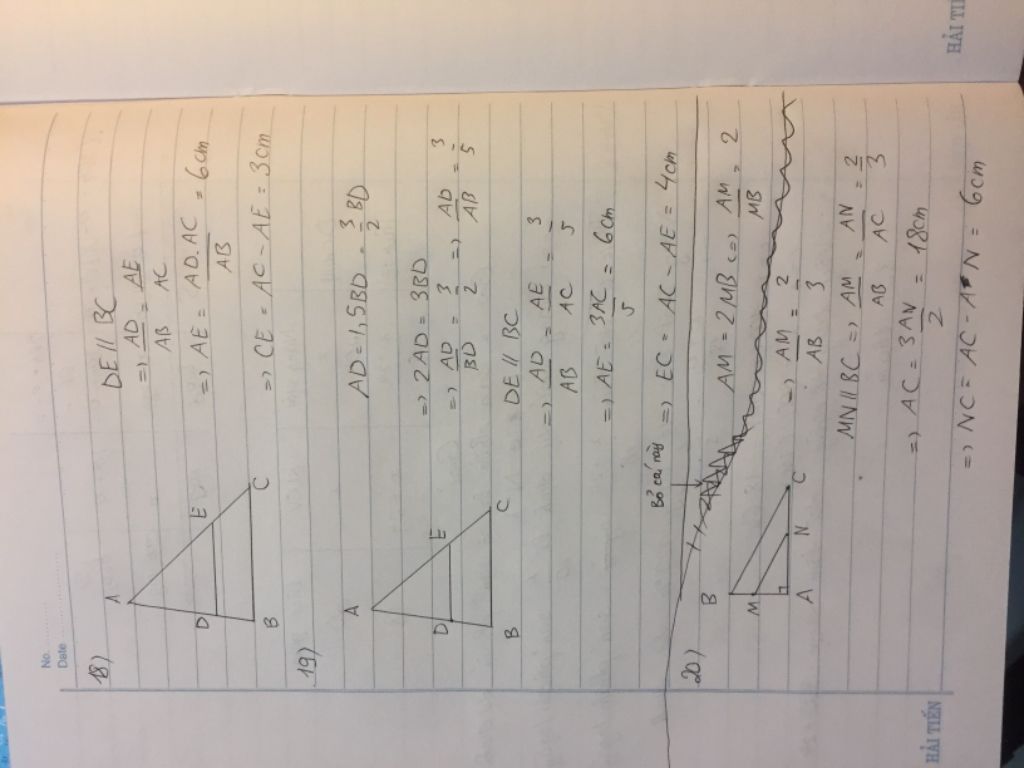 HẢI TIẾN
No.
Date
18)
A
D
E
B
C
DE // BC
=> AD/AB = AE/AC
=> AE = AD.AC/AB = 6cm
=> CE = AC - AE = 3cm
19)
A
D
E
B
C
AD = 1,5BD = 3/2 BD
=> 2AD = 3BD
=> AD/BD = 3/2 => AD/AB = 3/5
DE // BC
=> AD/AB = AE/AC = 3/5
=> AE = 3AC/5 = 6cm
=> EC = AC - AE = 4cm
Bỏ cái này
20)
B
M
A
N
C
AM = 2MB <=> AM/MB = 2
=> AM/AB = 2/3
MN // BC => AM/AB = AN/AC = 2/3
=> AC = 3AN/2 = 18cm
=> NC = AC - AN = 6cm
HẢI TIẾN